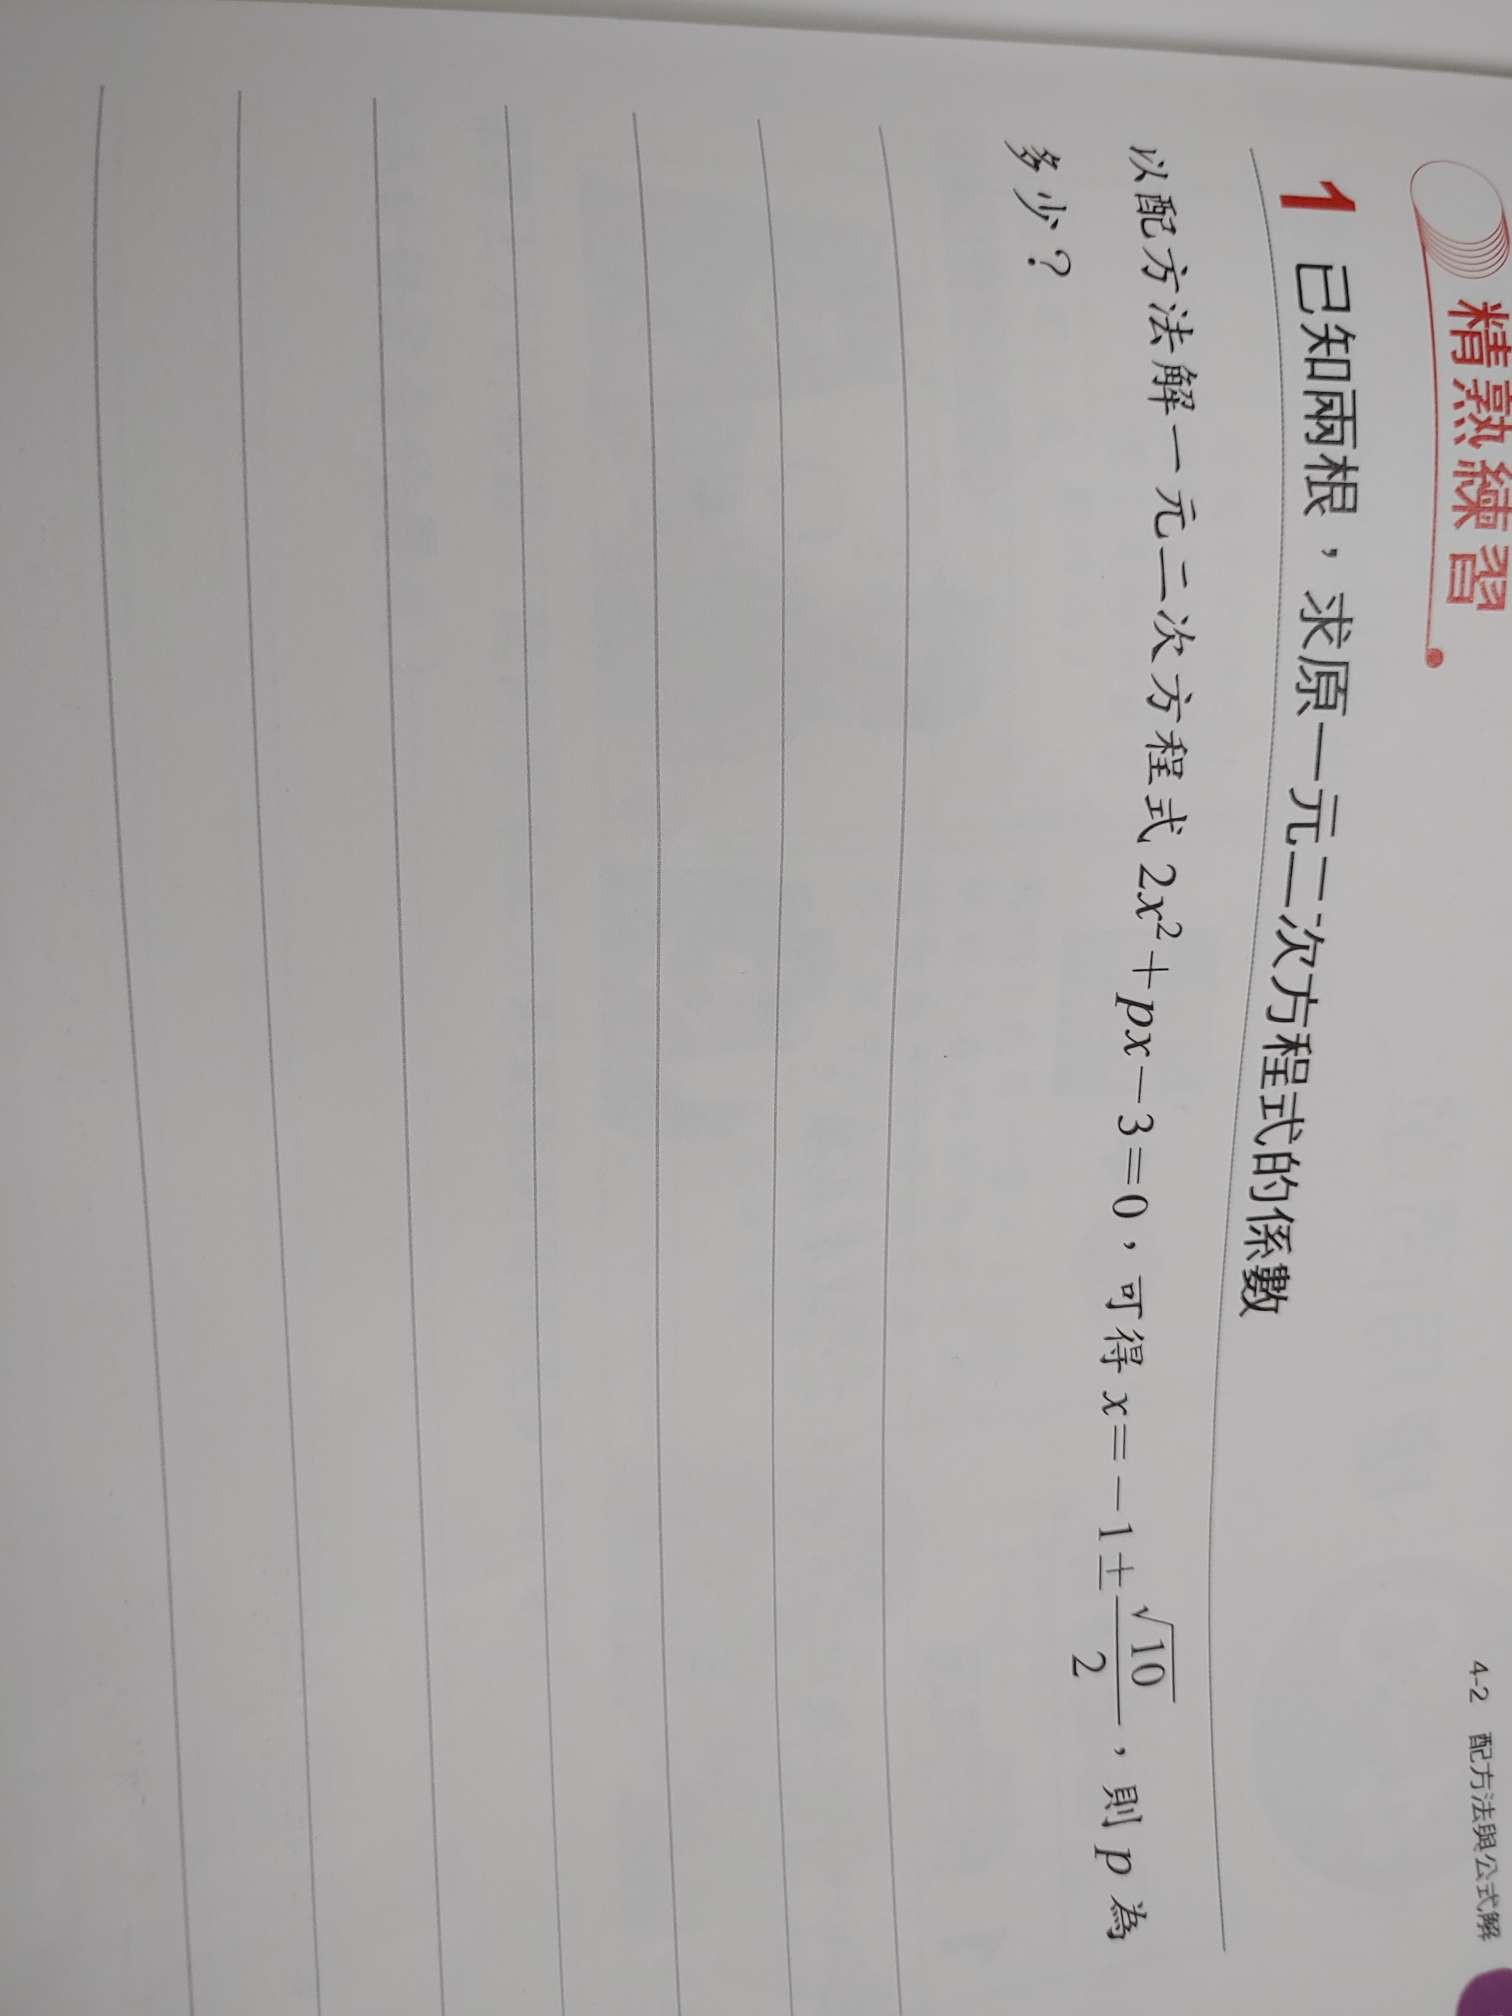 4-2 配方法與公式解
精熟練習
1 已知兩根，求原一元二次方程式的係數
以配方法解一元二次方程式 2x²+px－3=0，可得 x=－1±√10/2，則 p 為
多少？